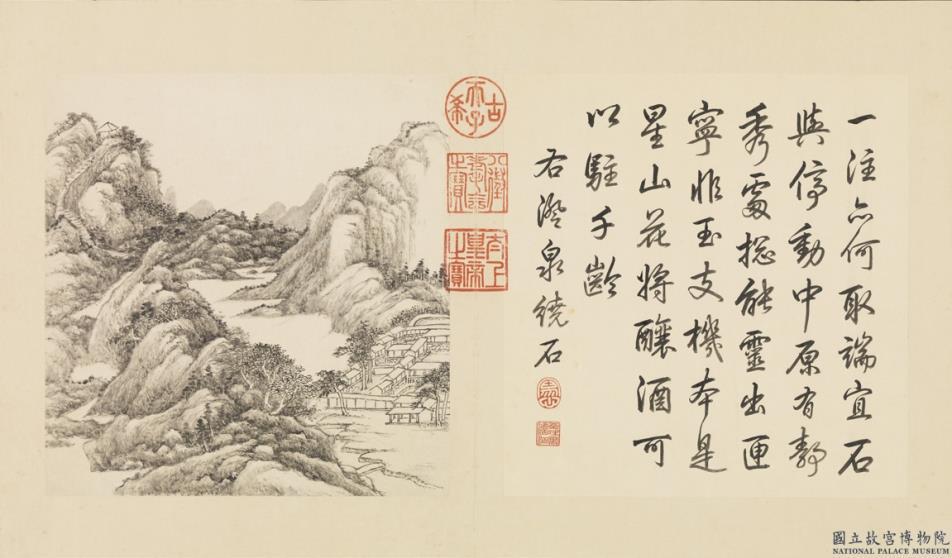 一注亦何取端宜石
與停動中原有靜
秀處總能靈出匣
寧非玉支機本是
星山花將釀酒可
以駐千齡
右澄泉繞石
古希天子
八徵耄念之寶
太上皇帝之寶
國立故宮博物院
NATIONAL PALACE MUSEUM